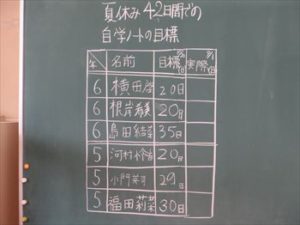 夏休み42日間での
自学ノートの目標
年 名前 目標 実際
6 横田 20日
6 根岸 20日
6 島田結菜 35日
5 河村 20日
5 小門 29日
5 福田莉菜 30日